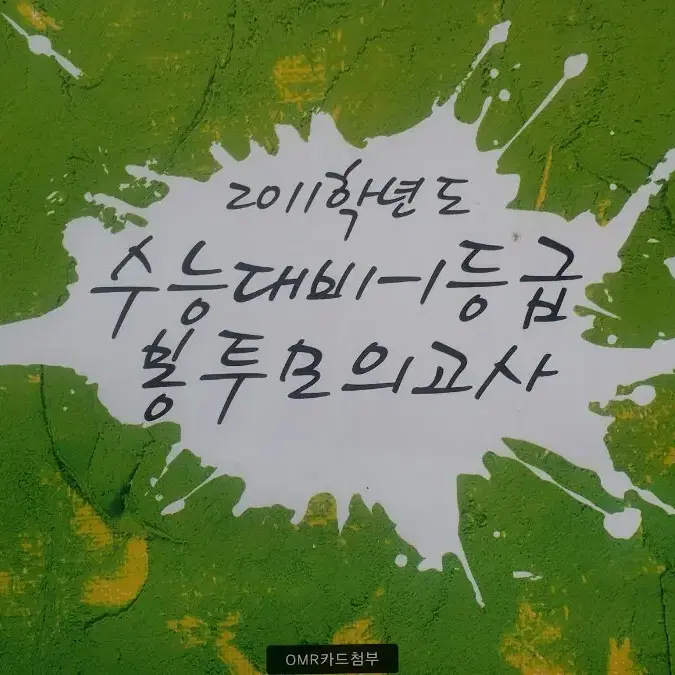 2011학년도
수능대비-1등급
봉투모의고사
OMR카드첨부